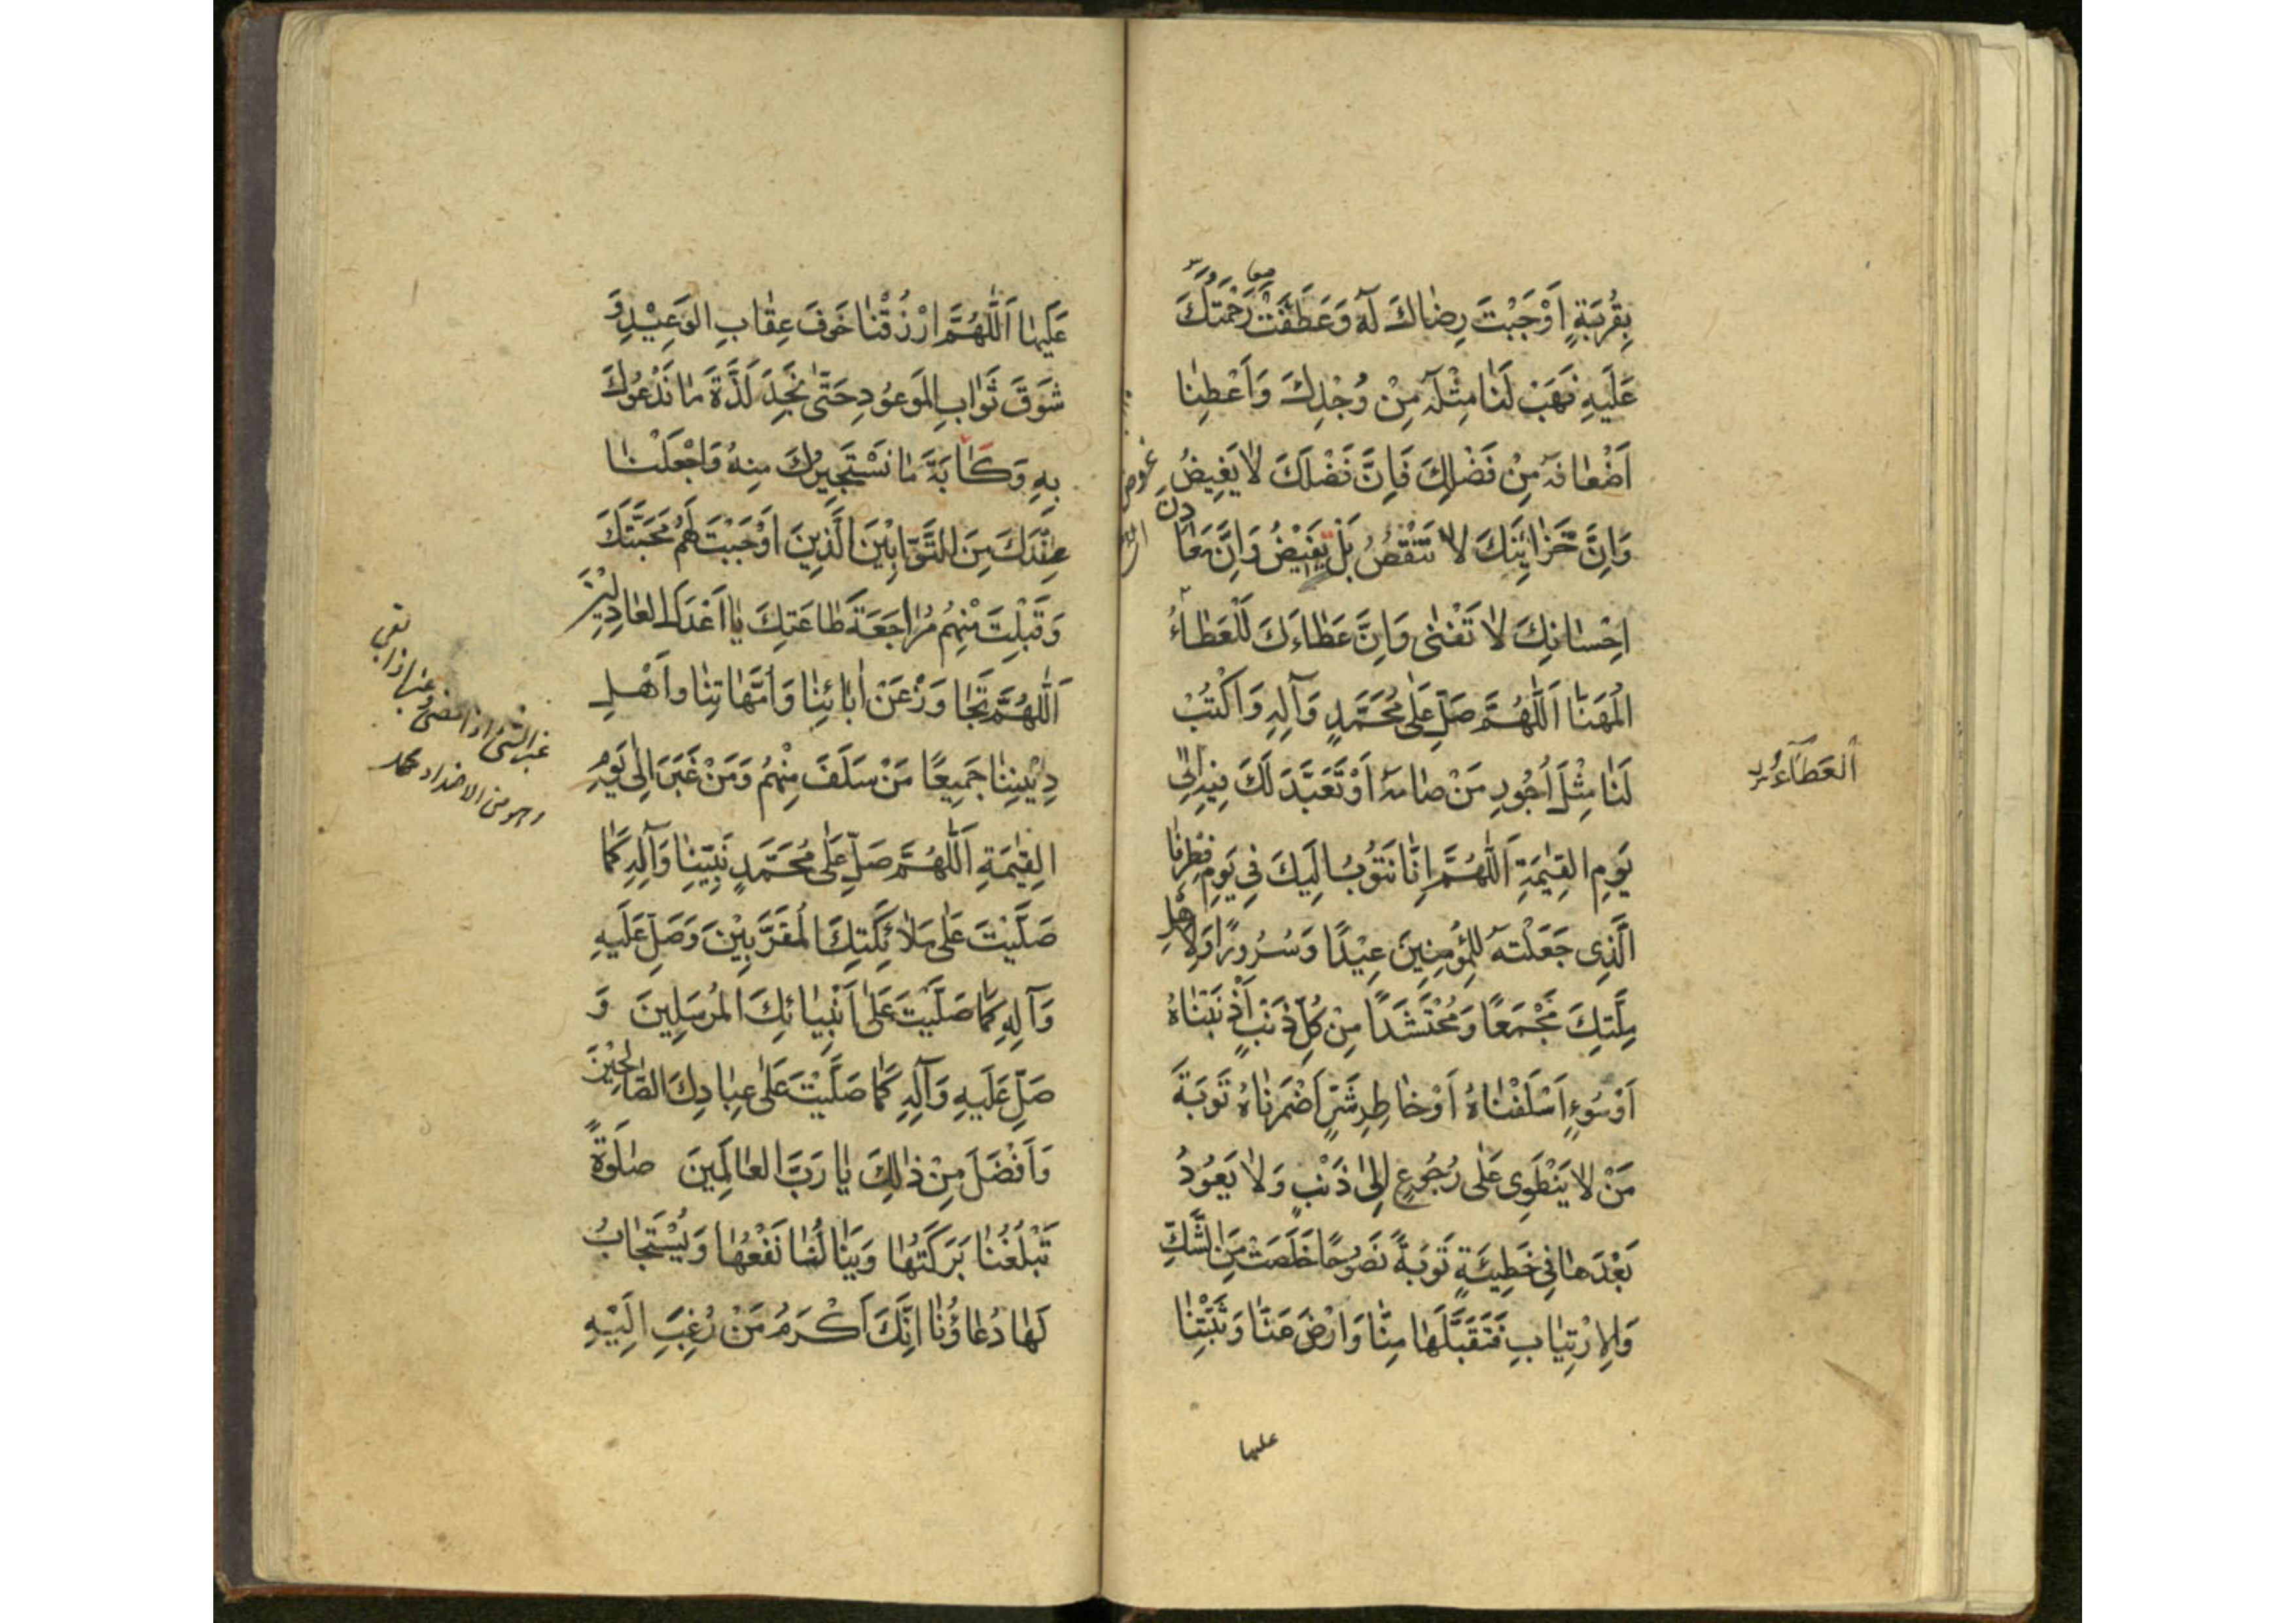 بِقُرْبَةٍ اَوْجَبْتَ رِضٰاكَ لَهُ وَعَطَفَتْ رَحْمَتُكَ
عَلَيْهِ فَهَبْ لَنٰا مِثْلَهُ مِنْ وُجْدِكَ وَاَعْطِنٰا
اَضْعٰافَهُ مِنْ فَضْلِكَ فَاِنَّ فَضْلَكَ لٰا يَغِيضُ
وَاِنَّ خَزٰائِنَكَ لٰا تَنْقُصُ بَلْ يَفِيْضُ وَاِنَّ مَعٰادِنَ
اِحْسٰانِكَ لٰا تَفْنٰى وَاِنَّ عَطٰاءَكَ لَلْعَطٰاءُ
الْمُهَنّٰا اَللّٰهُمَّ صَلِّ عَلٰى مُحَمَّدٍ وَآلِهِ وَاكْتُبْ
لَنٰا مِثْلَ اُجُورِ مَنْ صٰامَهُ اَوْ تَعَبَّدَ لَكَ فِيهِ اِلٰى
يَوْمِ الْقِيٰمَةِ اَللّٰهُمَّ اِنّٰا نَتُوبُ اِلَيْكَ فِي يَوْمِ فِطْرِنٰا
الَّذِي جَعَلْتَهُ لِلْمُؤْمِنِينَ عِيْدًا وَسُرُورًا وَلِاَهْلِ
مِلَّتِكَ مَجْمَعًا وَمُحْتَشَدًا مِنْ كُلِّ ذَنْبٍ اَذْنَبْنٰاهُ
اَوْ سُوءٍ اَسْلَفْنٰاهُ اَوْ خٰاطِرِ شَرٍّ اَضْمَرْنٰاهُ تَوْبَةَ
مَنْ لٰا يَنْطَوِي عَلٰى رُجُوعٍ اِلٰى ذَنْبٍ وَلٰا يَعُودُ
بَعْدَهٰا فِي خَطِيئَةٍ تَوْبَةً نَصُوحًا خَلَصَتْ مِنَ الشَّكِّ
وَالِارْتِيٰابِ فَتَقَبَّلْهٰا مِنّٰا وَارْضَ عَنّٰا وَثَبِّتْنٰا
عليها
عَلَيْهٰا اَللّٰهُمَّ ارْزُقْنٰا خَوْفَ عِقٰابِ الْوَعِيْدِ وَ
شَوْقَ ثَوٰابِ الْمَوْعُودِ حَتّٰى نَجِدَ لَذَّةَ مٰا نَدْعُوكَ
بِهِ وَكَاٰبَةَ مٰا نَسْتَجِيرُكَ مِنْهُ وَاجْعَلْنٰا
عِنْدَكَ مِنَ التَّوّٰابِيْنَ الَّذِينَ اَوْجَبْتَ لَهُمْ مَحَبَّتَكَ
وَقَبِلْتَ مِنْهُمْ مُرٰاجَعَةَ طٰاعَتِكَ يٰا اَعْدَلَ الْعٰادِلِيْنَ
اَللّٰهُمَّ تَجٰاوَزْ عَنْ اٰبٰائِنٰا وَاُمَّهٰاتِنٰا وَاَهْلِ
دِيْنِنٰا جَمِيعًا مَنْ سَلَفَ مِنْهُمْ وَمَنْ غَبَرَ اِلٰى يَوْمِ
الْقِيٰمَةِ اَللّٰهُمَّ صَلِّ عَلٰى مُحَمَّدٍ نَبِيِّنٰا وَآلِهِ كَمٰا
صَلَّيْتَ عَلٰى مَلٰائِكَتِكَ الْمُقَرَّبِيْنَ وَصَلِّ عَلَيْهِ
وَآلِهِ كَمٰا صَلَّيْتَ عَلٰى اَنْبِيٰائِكَ الْمُرْسَلِينَ وَ
صَلِّ عَلَيْهِ وَآلِهِ كَمٰا صَلَّيْتَ عَلٰى عِبٰادِكَ الصّٰالِحِيْنَ
وَاَفْضَلَ مِنْ ذٰلِكَ يٰا رَبَّ الْعٰالَمِينَ صَلٰوةً
تَبْلُغُنٰا بَرَكَتُهٰا وَيَنٰالُنٰا نَفْعُهٰا وَيُسْتَجٰابُ
لَهٰا دُعٰاؤُنٰا اِنَّكَ اَكْرَمُ مَنْ رُغِبَ اِلَيْهِ